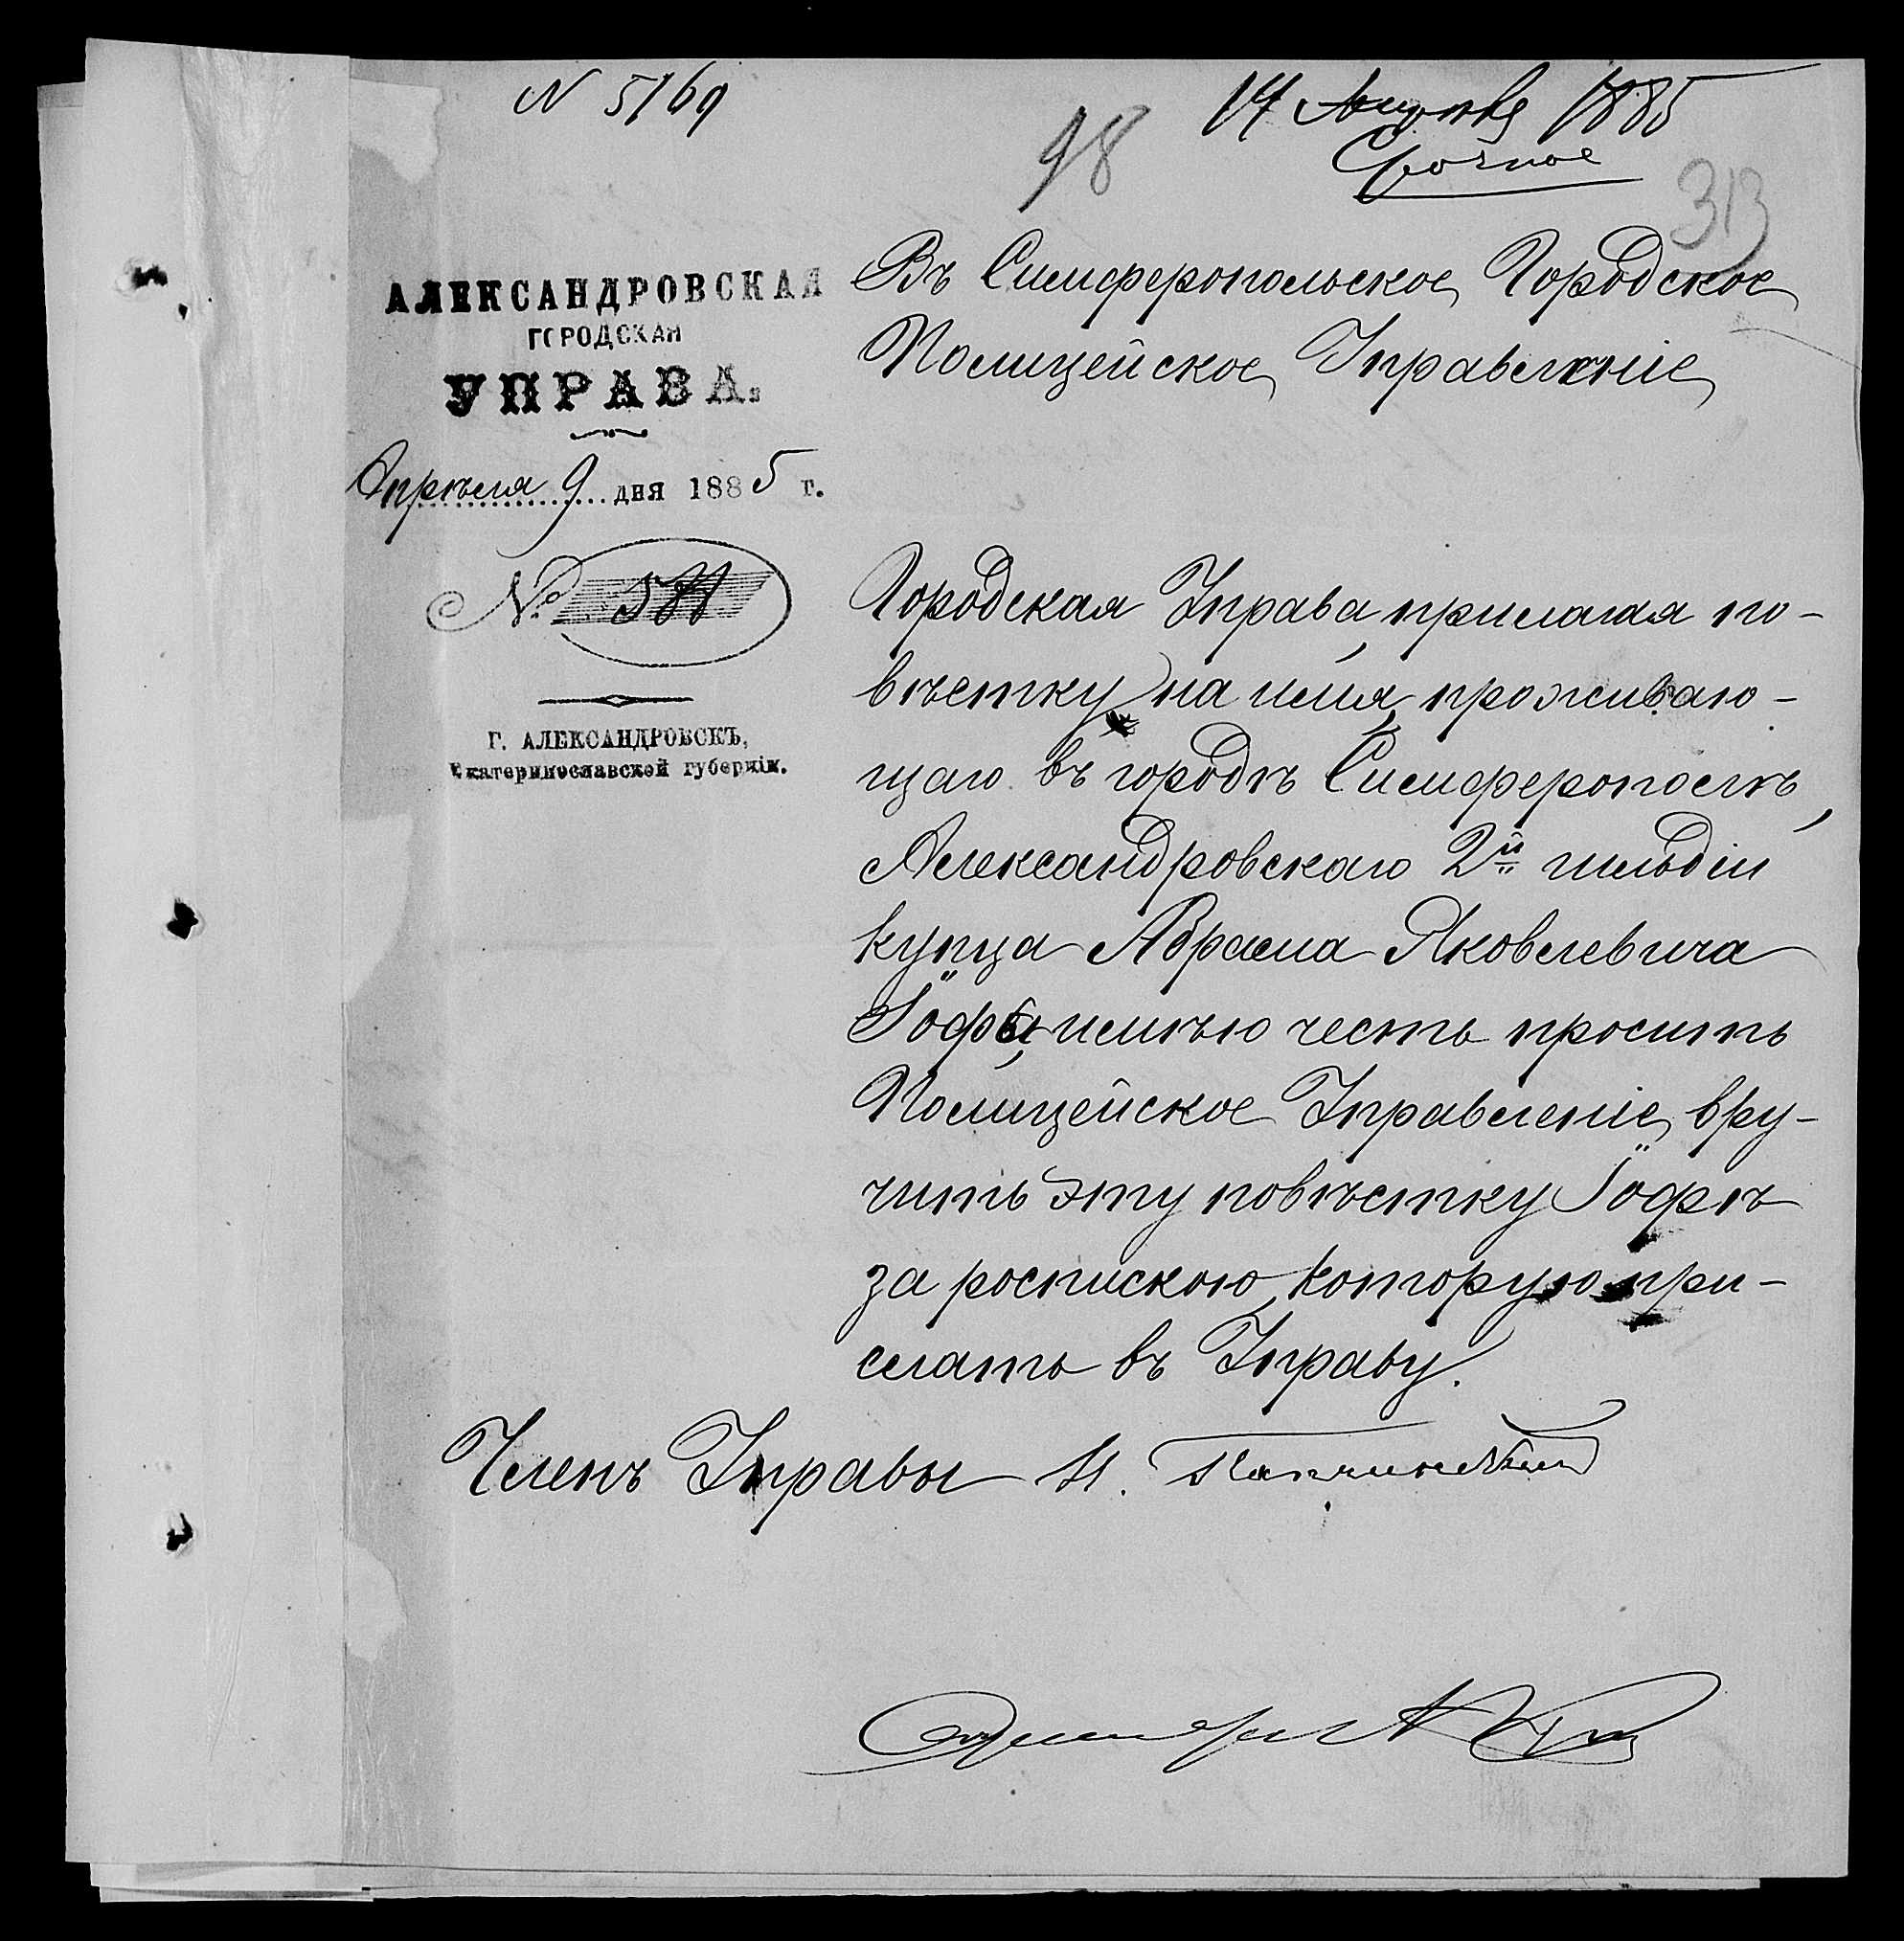 N 5169
14 Апрѣля 1885
Срочное
98
313
АЛЕКСАНДРОВСКАЯ
ГОРОДСКАЯ
УПРАВА.
Апрѣля 9 дня 1885 г.
№
Г. АЛЕКСАНДРОВСКЪ,
Екатеринославской губерніи.
Въ Симферопольское Городское
Полицейское Управленіе
Городская Управа, прилагая по-
вѣстку на имя, проживаю-
щаго въ городѣ Симферополѣ,
Александровскаго 2й гильдіи
купца Абрама Яковлевича
Іофа, имѣю честь просить
Полицейское Управленіе вру-
чить эту повѣстку Іофѣ
за роспискою, которую при-
слать въ Управу.
Членъ Управы Н.